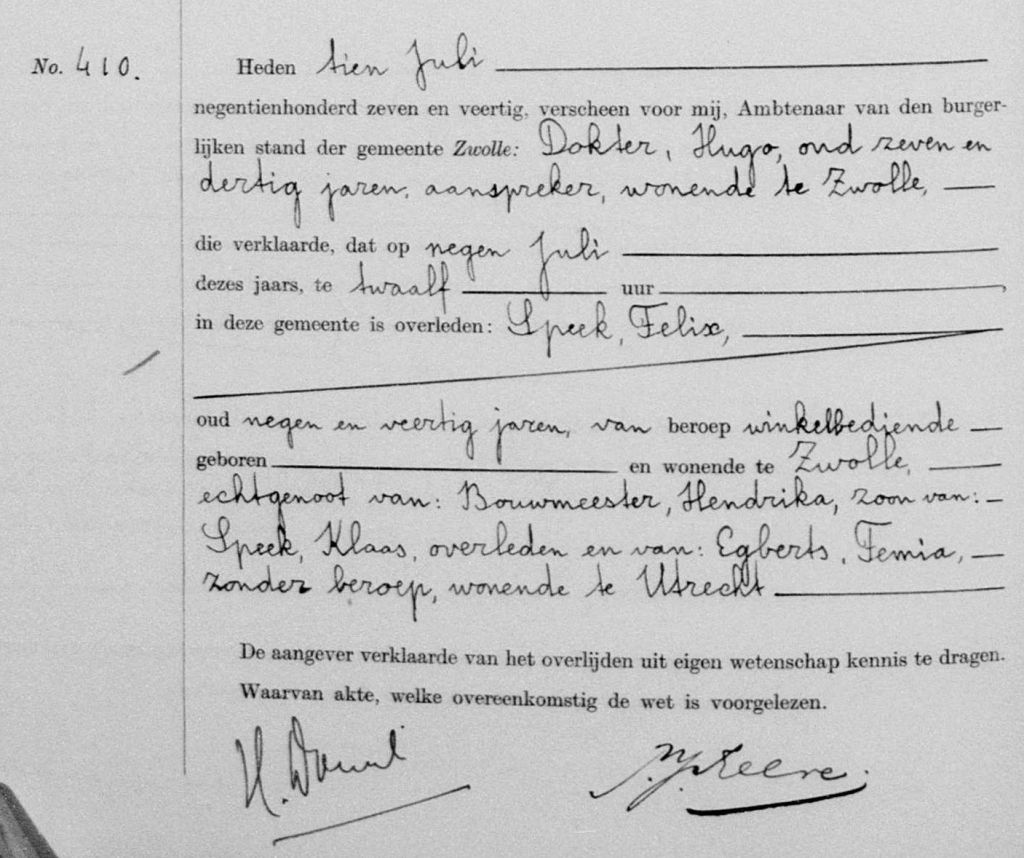 No. 410.
Heden tien Juli
negentienhonderd zeven en veertig, verscheen voor mij, Ambtenaar van den burger-
lijken stand der gemeente Zwolle: Dokter, Hugo, oud zeven en
dertig jaren, aanspreker, wonende te Zwolle,
die verklaarde, dat op negen Juli
dezes jaars, te twaalf uur
in deze gemeente is overleden: Speek, Felix,
oud negen en veertig jaren, van beroep winkelbediende
geboren en wonende te Zwolle,
echtgenoot van: Bouwmeester, Hendrika, zoon van:
Speek, Klaas, overleden en van: Egberts, Femia,
zonder beroep, wonende te Utrecht
De aangever verklaarde van het overlijden uit eigen wetenschap kennis te dragen.
Waarvan akte, welke overeenkomstig de wet is voorgelezen.
H.